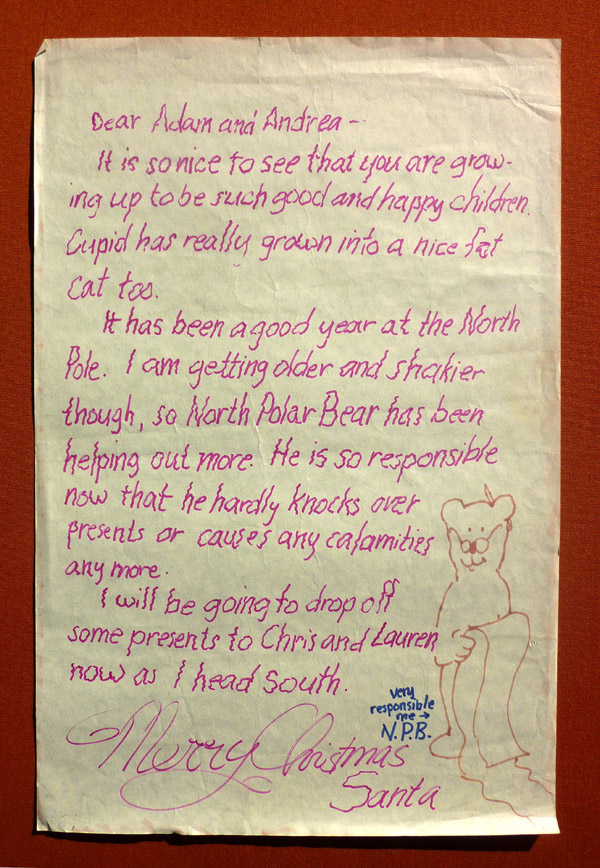 Dear Adam and Andrea -
It is so nice to see that you are grow-
ing up to be such good and happy children.
Cupid has really grown into a nice fat
cat too.
It has been a good year at the North
Pole. I am getting older and shakier
though, so North Polar Bear has been
helping out more. He is so responsible
now that he hardly knocks over
presents or causes any calamities
any more.
I will be going to drop off
some presents to Chris and Lauren
now as I head South.
very
responsible
me →
N.P.B.
Merry Christmas
Santa